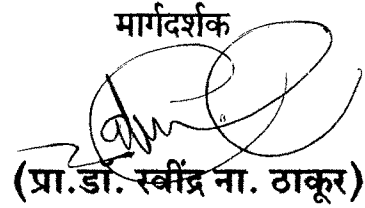 मार्गदर्शक
(प्रा.डॉ. रवींद्र ना. ठाकूर)